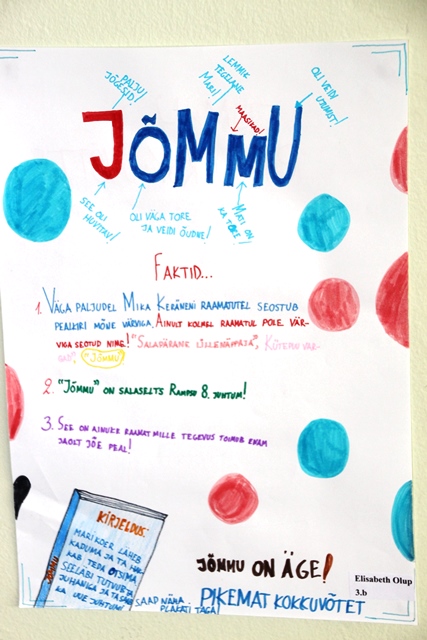 PALJU
JÕGESID!
LEMMIK
TEGELANE
MARI!
MAASIKAD!
OLI VEIDI
UJUMIST!
JÕMMU
SEE OLI
HUVITAV!
OLI VÄGA TORE
JA VEIDI ÕUDNE!
MATI ON
KA TORE!
FAKTID...
1. VÄGA PALJUDEL MIKA KERÄNENI RAAMATUTEL SEOSTUB
PEALKIRI MÕNE VÄRVIGA. AINULT KOLMEL RAAMATUL POLE VÄR-
VIGA SEOTUD NIME! "SALAPÄRANE LILLENÄPPAJA", KÜTEPUU VAR-
GAD", "JÕMMU"
2. "JÕMMU" ON SALASELTS RAMPSU 8. JUHTUM!
3. SEE ON AINUKE RAAMAT MILLE TEGEVUS TOIMUB ENAM
JAOLT JÕE PEAL!
KIRJELDUS:
MARI KOER LÄHEB
KADUMA JA TA HAK-
KAB TEDA OTSIMA
SEELÄBI TUTVUB TA
JUHANIGA JA TA SAAB
KA UUE JUHTUMI!
JÕMMU
SAAD NÄHA
PLAKATI TAGA!
JÕMMU ON ÄGE!
PIKEMAT KOKKUVÕTET
Elisabeth Olup
3.b